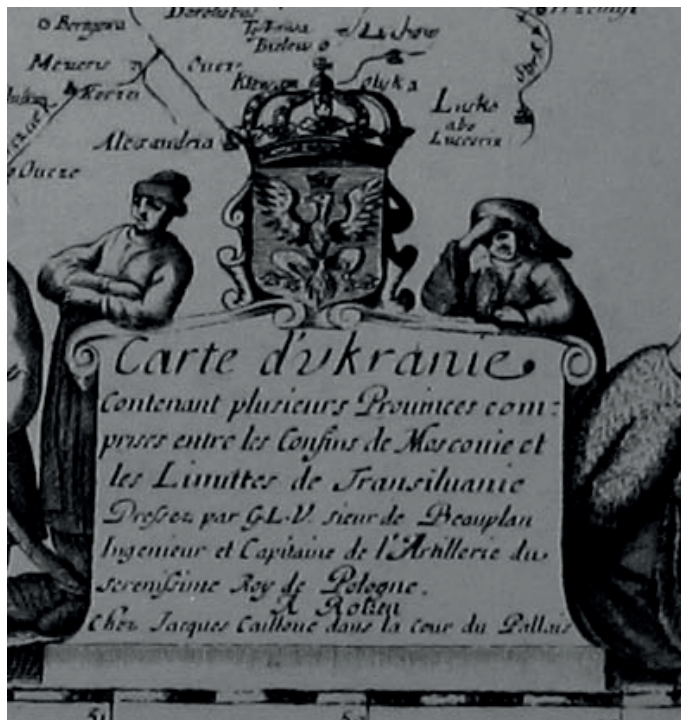 Berzowa
Luchow
Bielew
Klewan
olyka
Korzec
Alexandria
Lusko
abo
Luceoria
Carte d'vkranie.
Contenant plusieurs Prouinces com=
prises entre les Confins de Moscouie et
les Limittes de Transiluanie
Dressez par G.L.V. sieur de Beauplan
Ingenieur et Capitaine de l'Artillerie du
serenissime Roy de Pologne.
A Roüen
Chez Jacques Cailloüe dans la cour du Pallais
51